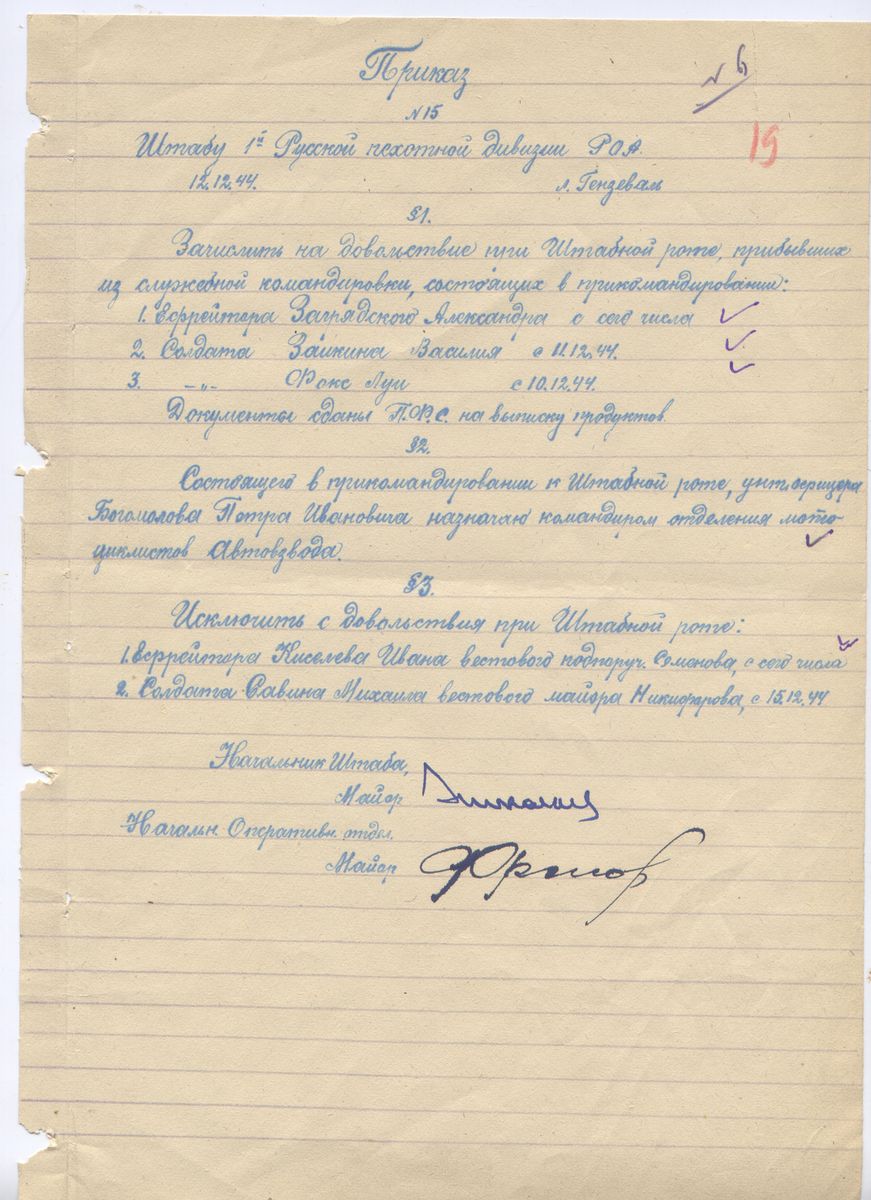 Приказ
№ 6
№ 15
19
Штабу 1й Русской пехотной дивизии Р.О.А.
12.12.44. л. Гензеваль
§1.
Зачислить на довольствие при Штабной роте, прибывших
из служебной командировки, состоящих в прикомандировании:
1. Ефрейтора Загрядского Александра с сего числа
2. Солдата Заикина Василия с 11.12.44.
3. -„- Фокс Луи с 10.12.44.
Документы сданы П.Ф.С. на выписку продуктов.
§2.
Состоящего в прикомандировании к Штабной роте, унт.офицера
Богомолова Петра Ивановича назначаю командиром отделения мото-
циклистов Автовзвода.
§3.
Исключить с довольствия при Штабной роте:
1. Ефрейтора Киселева Ивана вестового подпоруч. Семенова, с сего числа
2. Солдата Савина Михаила вестового майора Никифорова, с 15.12.44
Начальник Штаба,
Майор
Начальн. Оперативн. отдел.
Майор